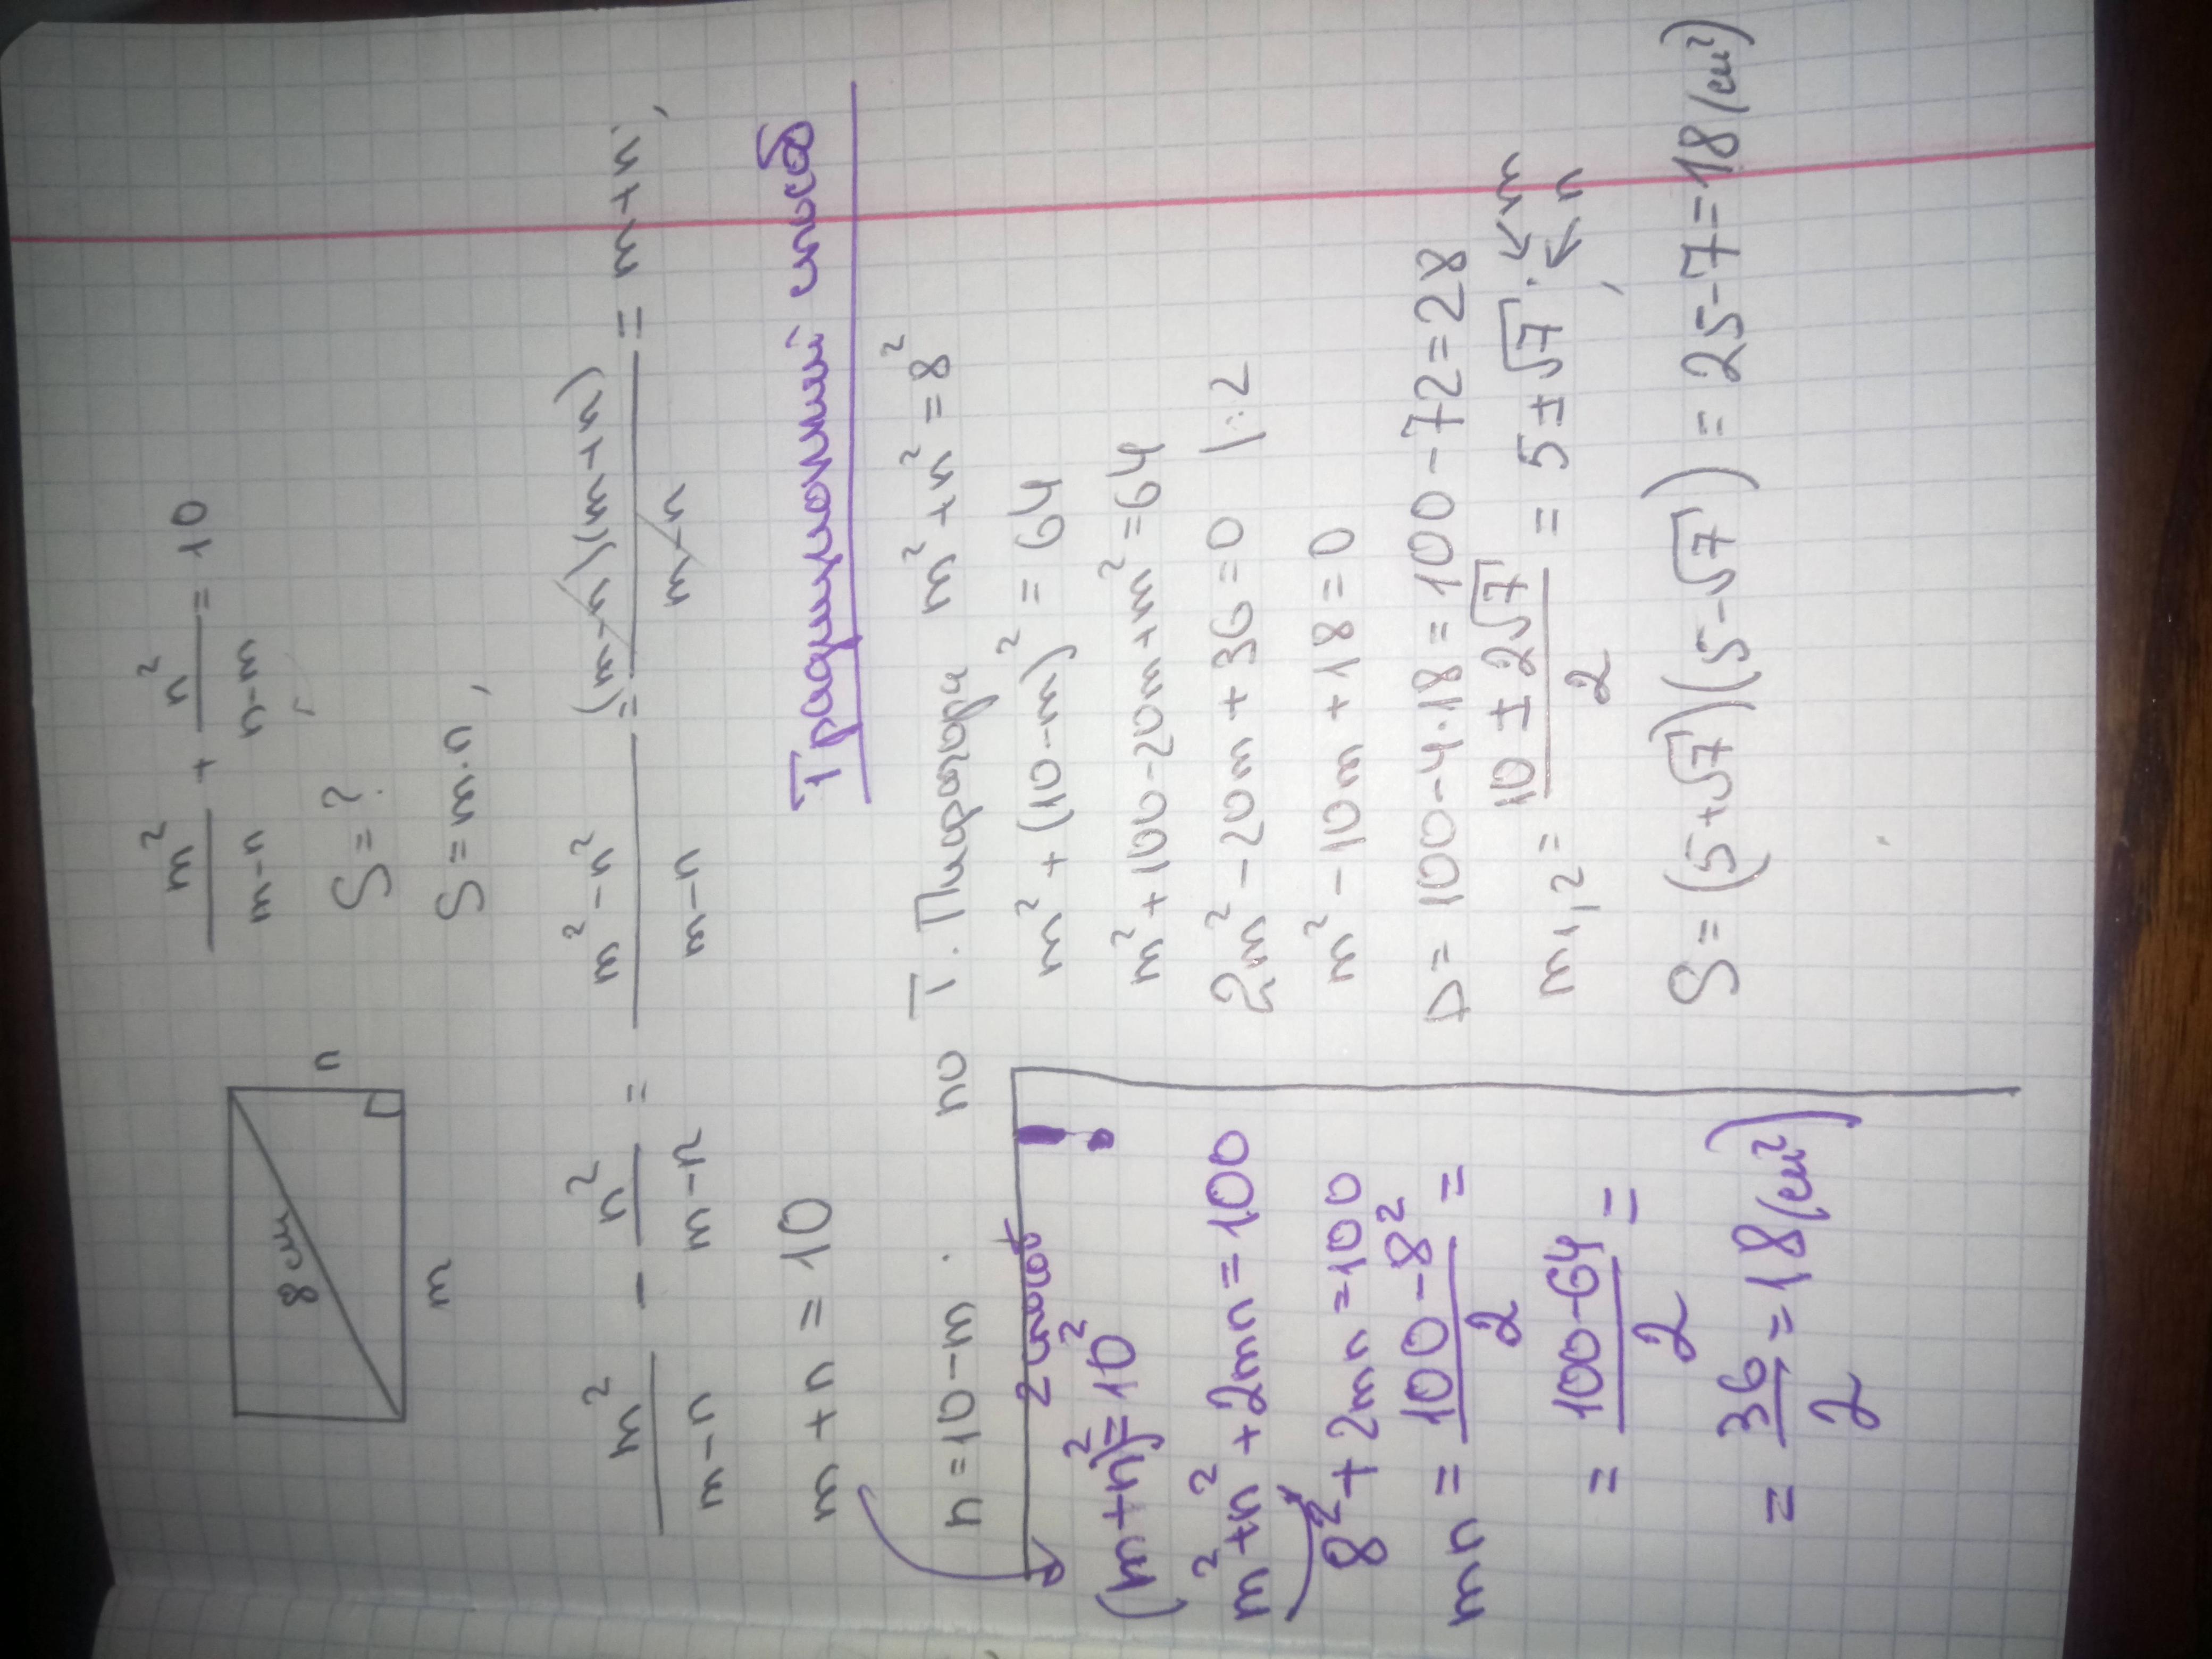 8 см
n
m
m²/(m-n) + n²/(n-m) = 10
S = ?
S = m·n,
m²/(m-n) - n²/(m-n) = (m²-n²)/(m-n) = (m-n)(m+n)/(m-n) = m+n,
m+n = 10
Традиционный способ
n = 10-m.
по Т. Пифагора m²+n² = 8²
m²+(10-m)² = 64
m²+100-20m+m² = 64
2m²-20m+36 = 0 |:2
m²-10m+18 = 0
D = 100-4·18 = 100-72 = 28
m₁,₂ = (10 ± 2√7)/2 = 5 ± √7. ← m
, ← n
S = (5+√7)(5-√7) = 25-7 = 18 (см²)
2 способ !
(m+n)² = 10²
m²+n²+2mn = 100
8²+2mn = 100
mn = (100-8²)/2 =
= (100-64)/2 =
= 36/2 = 18 (см²)